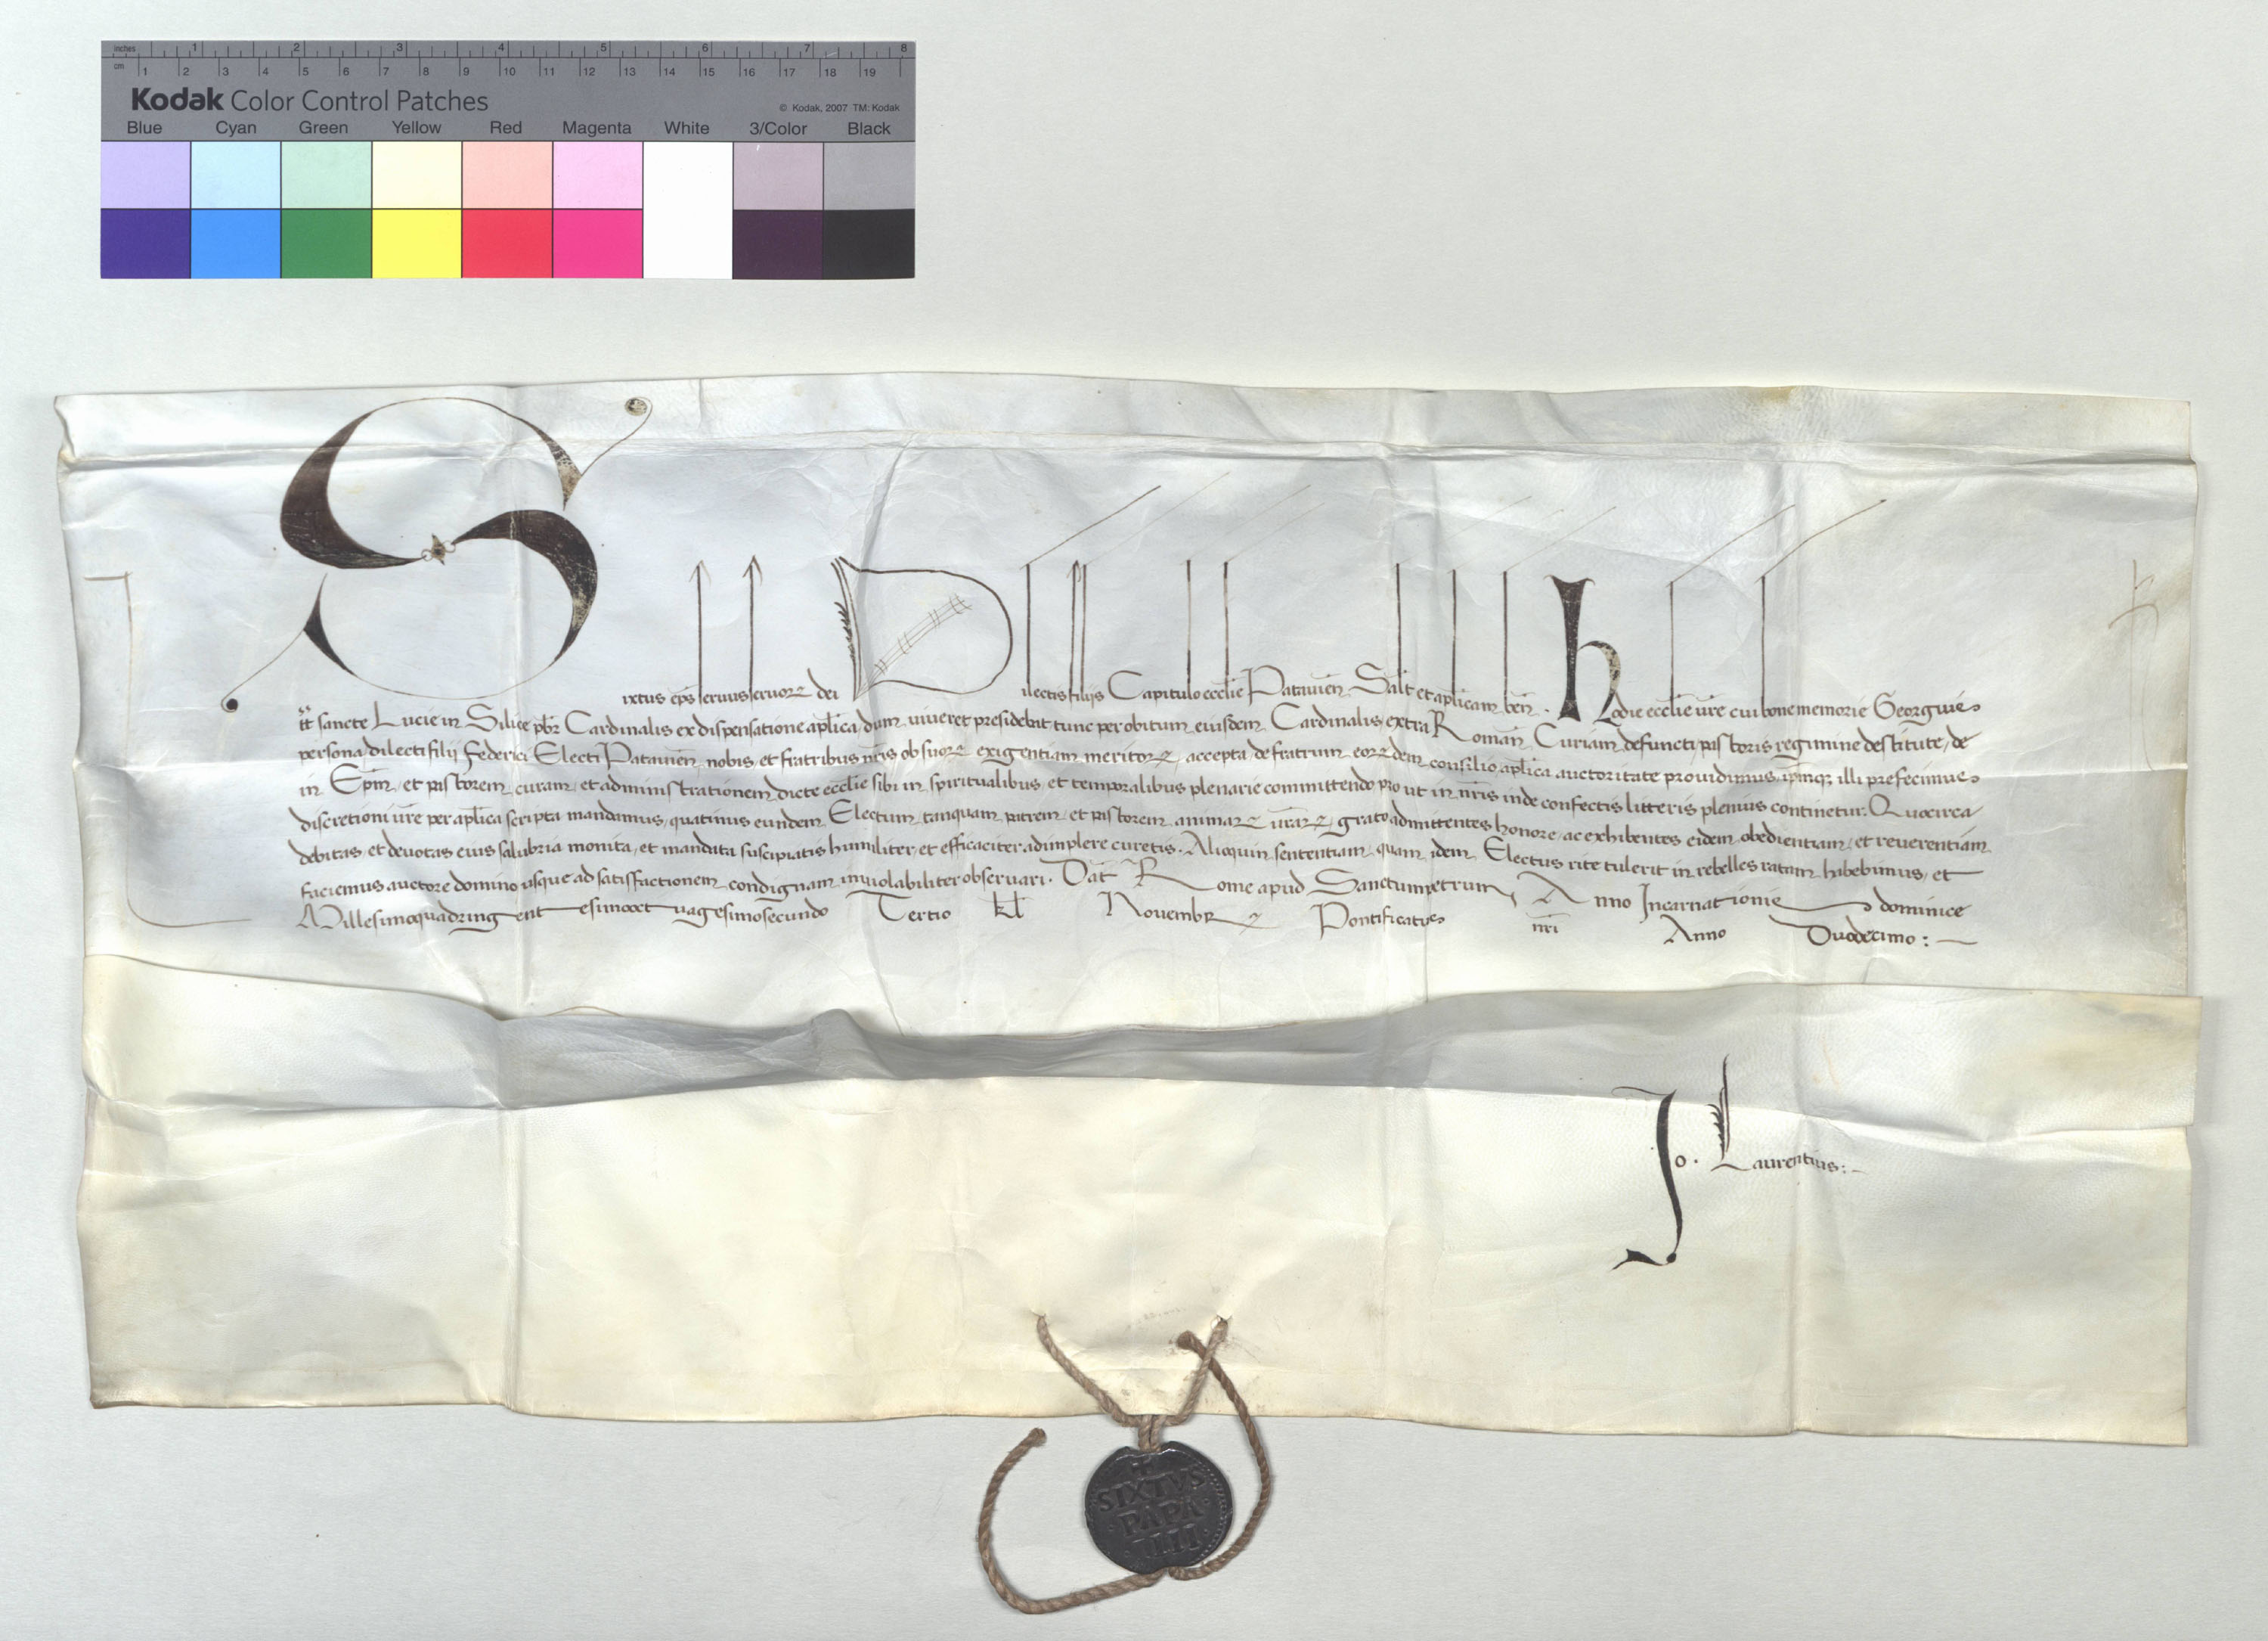 inches 1 2 3 4 5 6 7 8
cm 1 2 3 4 5 6 7 8 9 10 11 12 13 14 15 16 17 18 19
Kodak Color Control Patches © Kodak, 2007 TM: Kodak
Blue Cyan Green Yellow Red Magenta White 3/Color Black
Sixtus ep̄s servus servoꝝ dei Dilectis filiis Capitulo eccl̄ie Patavien̄ Salt̄ et ap̄licam ben̄. Hodie eccl̄ie vr̄e cui bone memorie Georgius
tt̄ sancte Lucie in Silice pb̄r Cardinalis ex dispensatione apl̄ica dum viveret presidebat tunc per obitum eiusdem Cardinalis extra Roman̄ Curiam defuncti pastoris regimine destitute, de
persona dilecti filii Federici Electi Patavien̄ nobis et fratribus nr̄is ob suoꝝ exigentiam meritoꝝ, accepta de fratrum eoꝝdem consilio apl̄ica auctoritate providimus, ip̄mqꝫ illi prefecimus
in Ep̄m et pastorem curam et administrationem dicte eccl̄ie sibi in spiritualibus et temporalibus plenarie committendo pro ut in nr̄is inde confectis litteris plenius continetur. Quocirca
discretioni vr̄e per apl̄ica scripta mandamus, quatinus eundem Electum tanquam patrem et pastorem animaꝝ vr̄aꝝ, grato admittentes honore, ac exhibentes eidem obedientiam et reverentiam
debitas et devotas eius salubria monita, et mandata suscipiatis humiliter et efficaciter adimplere curetis. Alioquin sententiam quam idem Electus rite tulerit in rebelles ratam habebimus, et
faciemus auctore domino usque ad satisfactionem condignam inviolabiliter observari. Dat̄ Rome apud Sanctumpetrum Anno Incarnationis dominice
Millesimoquadringentesimooctuagesimosecundo Tertio kl̄ Novembꝝ Pontificatus nr̄i Anno Duodecimo: —
Jo. Laurentius: -
SIXTVS
PAPA
IIII